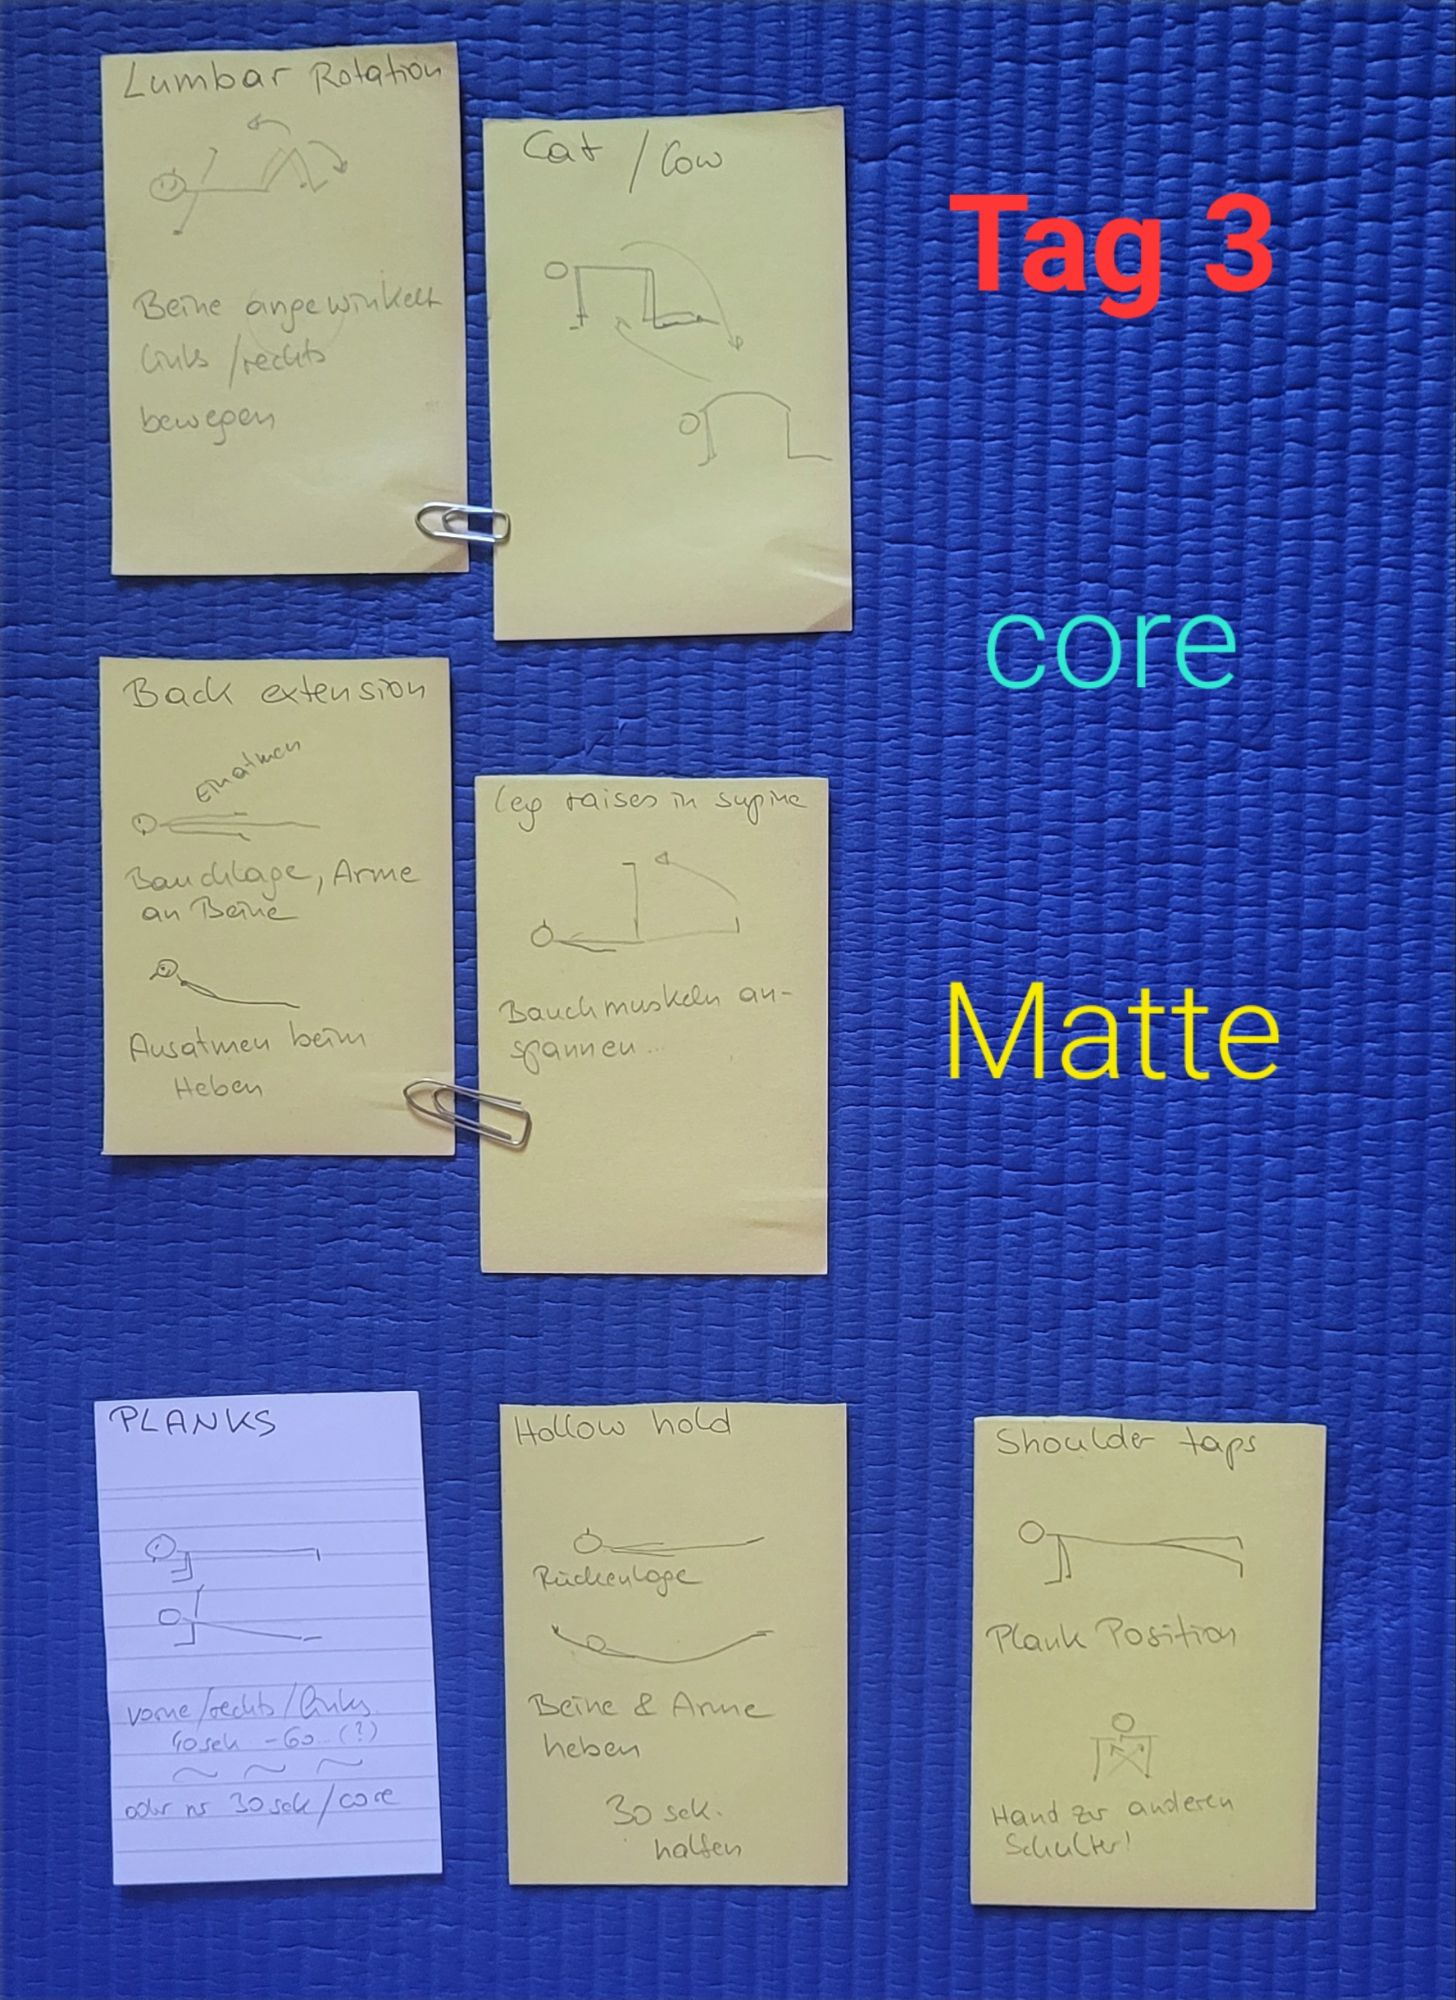 Lumbar Rotation
Beine angewinkelt
links/rechts
bewegen
Cat / Cow
Tag 3
core
Matte
Back extension
Einatmen
Bauchlage, Arme
an Beine
Ausatmen beim
Heben
leg raises in supine
Bauchmuskeln an-
spannen...
PLANKS
vorne/rechts/links
40sek - 60 (?)
oder 30 sek/core
Hollow hold
Rückenlage
Beine & Arme
heben
30 sek.
halten
Shoulder taps
Plank Position
Hand zur anderen
Schulter!